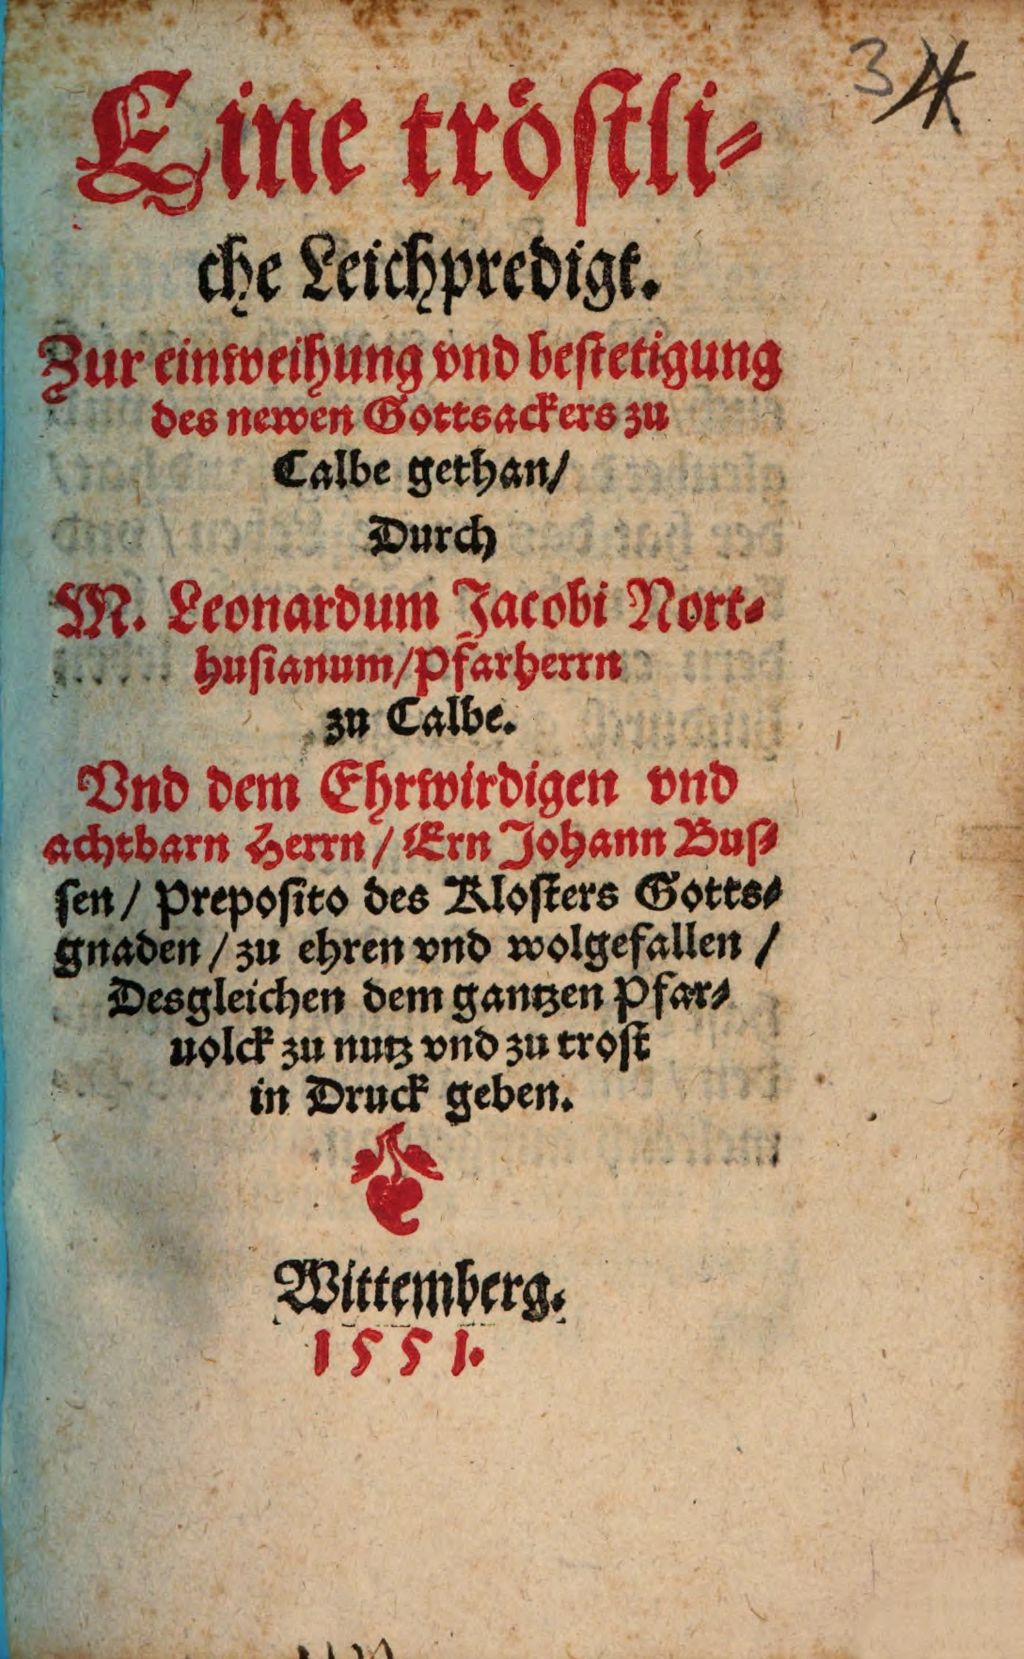 3 4
Eine tröſtli⸗
che Leichpredigt.
Zur einweihung vnd beſtetigung
des newen Gottsackers zu
Calbe gethan/
Durch
M. Leonardum Jacobi Nort⸗
huſianum/Pfarherrn
zu Calbe.
Vnd dem Ehrwirdigen vnd
achtbarn Herrn/ Ern Johann Buſ⸗
ſen/ Prepoſito des Kloſters Gotts⸗
gnaden/ zu ehren vnd wolgefallen/
Desgleichen dem gantzen Pfar⸗
uolck zu nutz vnd zu troſt
in Druck geben.
Wittemberg.
1551.